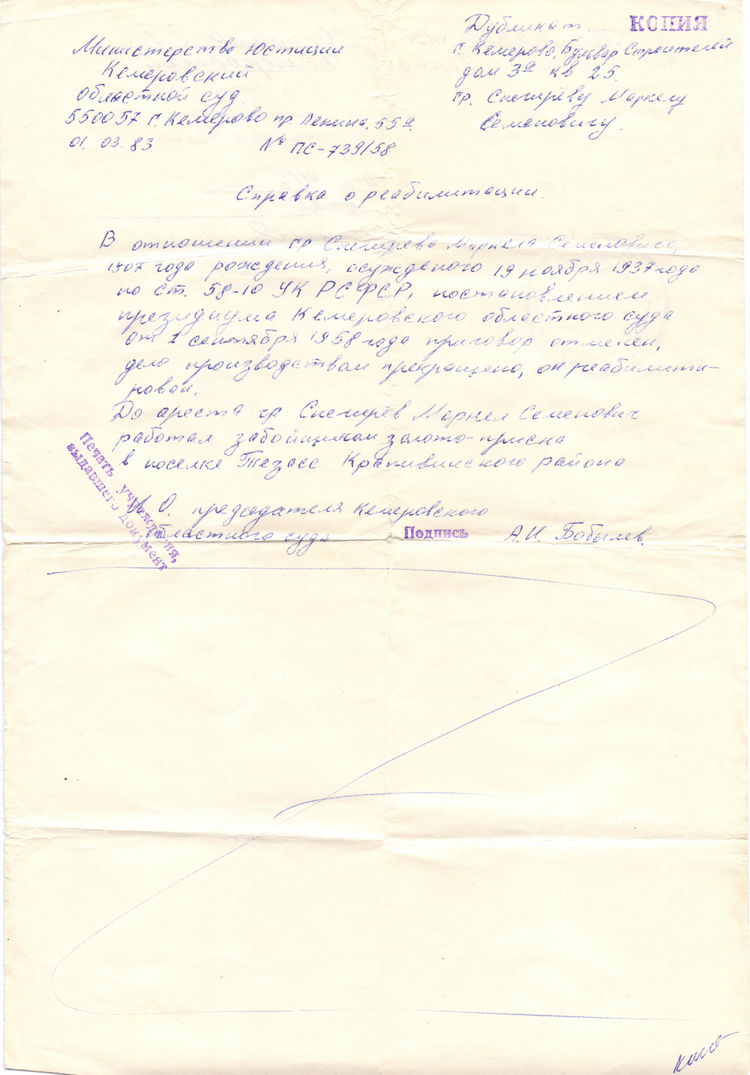 Дубликат. КОПИЯ
Министерство Юстиции
Кемеровский
областной суд
550057 г. Кемерово пр. Ленина, 55а.
01. 03. 83. № ПС-739/58
г. Кемерово, Бульвар Строителей
дом 3а кв 25.
гр. Снегирёву Маркелу
Семеновичу.
Справка о реабилитации.
В отношении гр Снегирева Маркела Семеновича,
1907 года рождения, осужденого 19 ноября 1937 года
по ст. 58-10 УК РСФСР, постановлением
президиума Кемеровского областного суда
от 2 сентября 1958 года приговор отменен,
дело производством прекращено, он реабилити-
рован.
До ареста гр Снегирёв Маркел Семенович
работал забойщиком золото-приска
в поселке Тезасс Крапивинского района
И. О. председателя Кемеровского
областного суда Подпись А.И. Бобылев.
Печать учреждения,
выдавшего документ